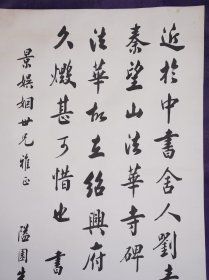 近於中書舍人劉
秦望山法華寺碑
法華故在紹興府
久燬甚可惜也 書
景娱姻世兄雅正
溫園